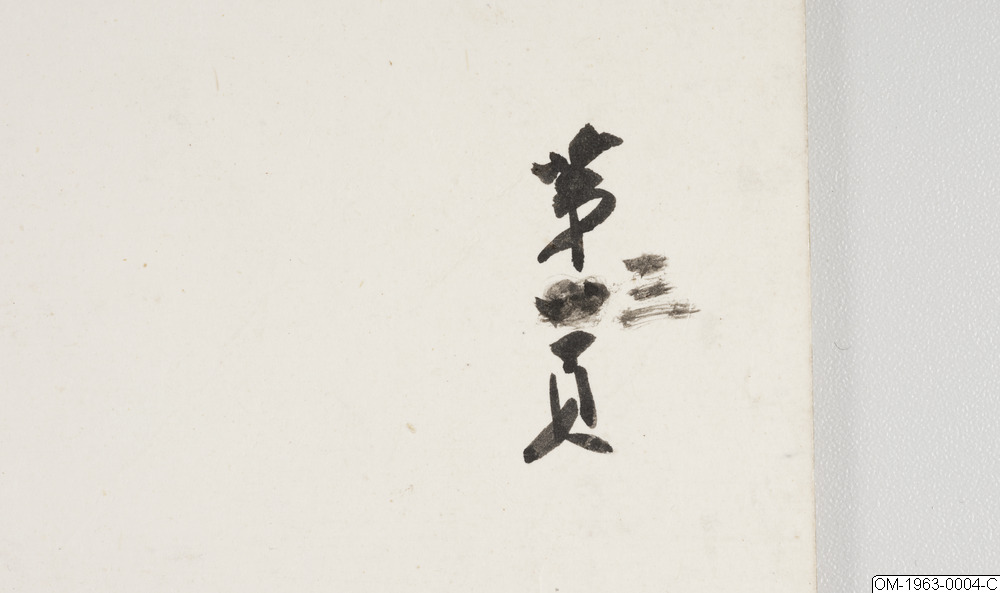 第三頁
OM-1963-0004-C